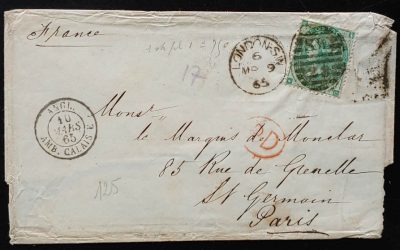 France
17
LONDON-S.W
6
MR 9
65
ANGL.
10
MARS
65
AMB. CALAIS
Monsr
le Marquis de Monclar
85 Rue de Grenelle
St Germain
Paris
PD
125